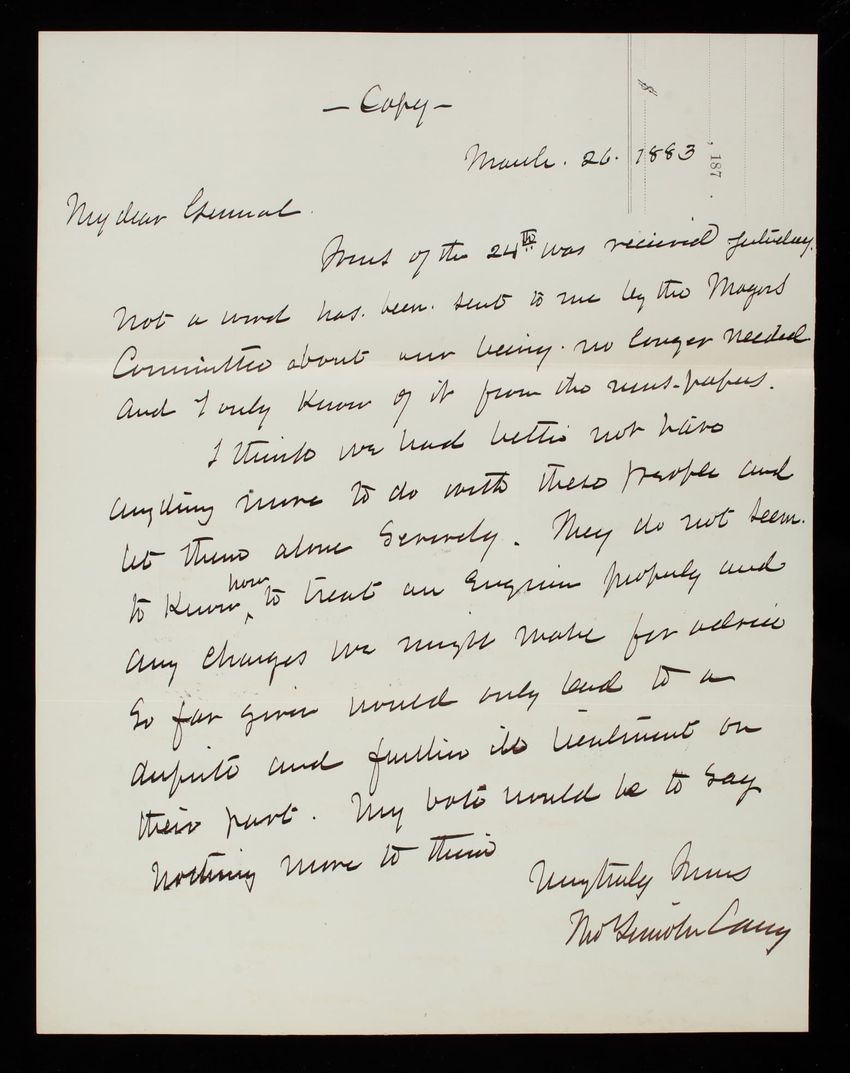 - Copy -
$
, 187 .
March. 26. 1883
My dear General.
Yours of the 24th was received yesterday.
Not a word has. been. sent to me by the Mayors
Committee about our being. no longer needed
and I only know of it from the news-papers.
I think we had better not have
anything more to do with these people and
let them alone severely. They do not seem.
to know how to treat an Engineer properly and
any charges we might make for advice
so far given would only lead to a
dispute and further ill treatment on
their part. My vote would be to say
nothing more to them
Very truly Yours
Thos Lincoln Casey